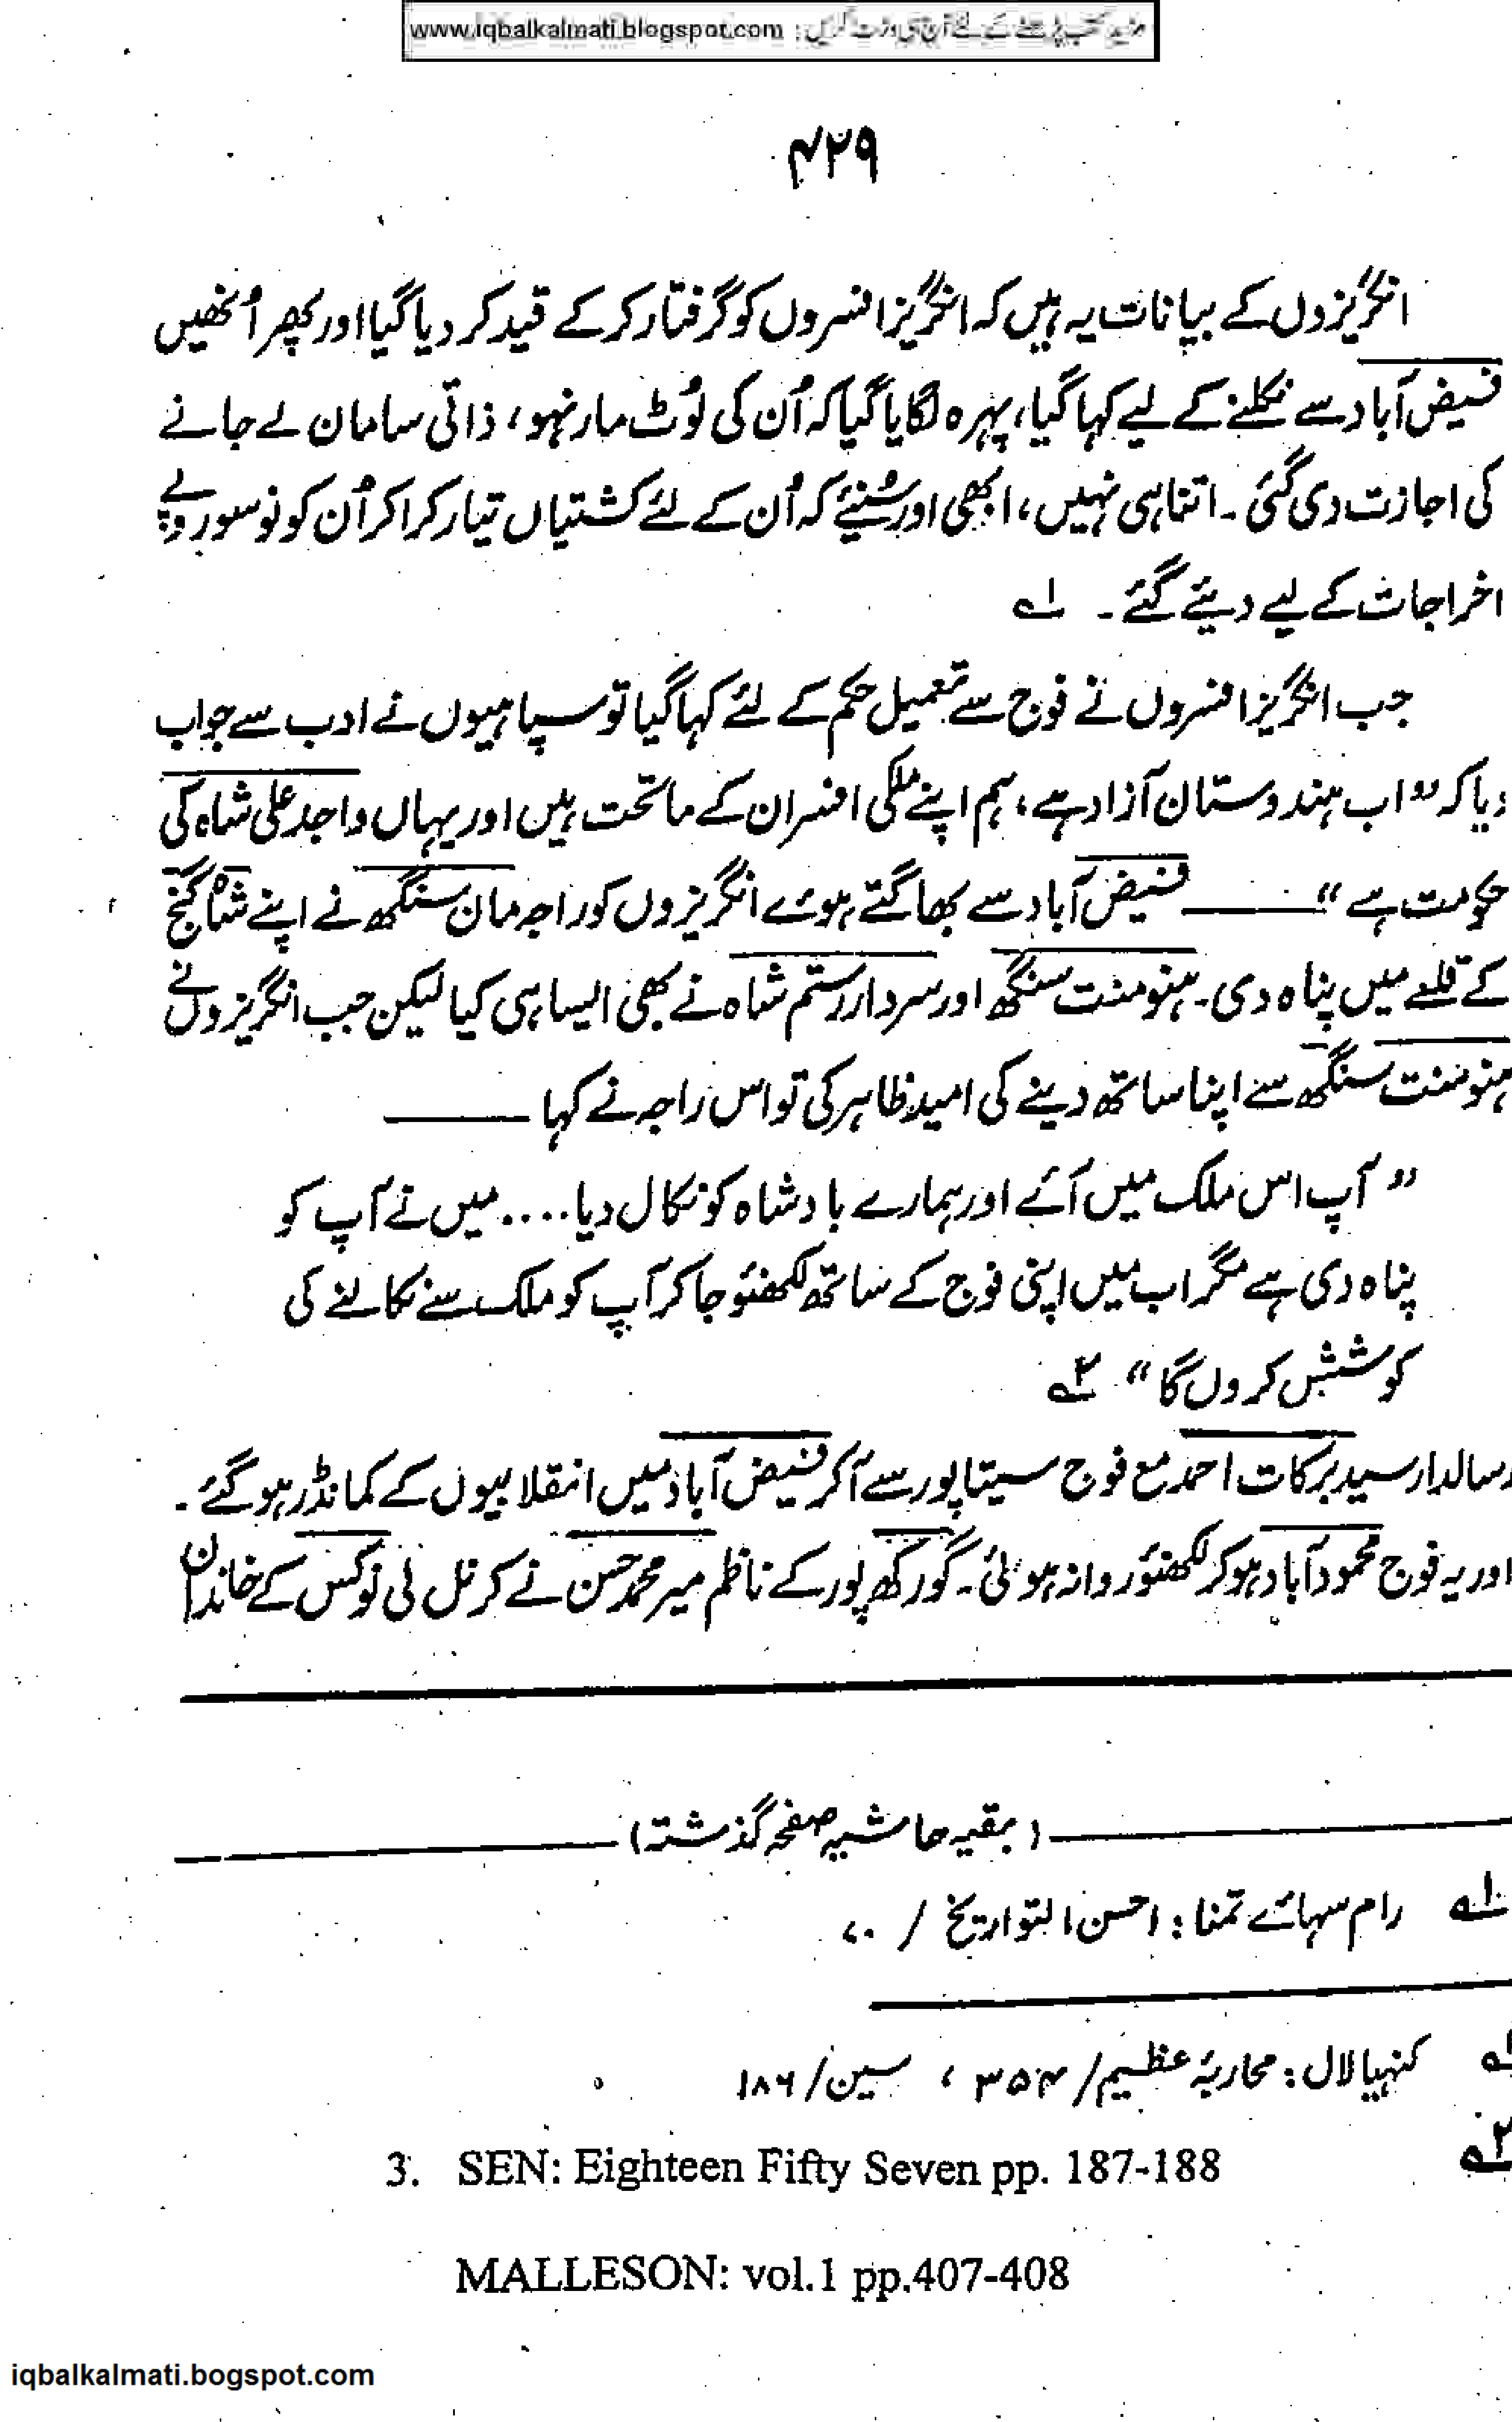 مزید کتب پڑھنے کے لئے آج ہی وزٹ کریں : www.iqbalkalmati.blogspot.com
۴۲۹
انگریزوں کے بیانات یہ ہیں کہ انگریز افسروں کو گرفتار کر کے قید کر دیا گیا اور پھر اُنھیں
فیض آباد سے نکلنے کے لیے کہا گیا، پہرہ لگایا گیا کہ اُن کی لُوٹ مار نہو، ذاتی سامان لے جانے
کی اجازت دی گئی۔ اتنا ہی نہیں، ابھی اور سُنیئے کہ اُن کے لئے کشتیاں تیار کرا کر اُن کو نو سو روپے
اخراجات کے لیے دیئے گئے۔ ۱؎
جب انگریز افسروں نے فوج سے تعمیل حکم کے لئے کہا گیا تو سپاہیوں نے ادب سے جواب
دیا کہ "اب ہندوستان آزاد ہے، ہم اپنے ملکی افسران کے ماتحت ہیں اور یہاں واجد علی شاہ کی
حکومت ہے" ——— فیض آباد سے بھاگتے ہوے انگریزوں کو راجہ مان سنگھ نے اپنے شاہ گنج
کے قلعے میں پناہ دی۔ ہنومنت سنگھ اور سردار رستم شاہ نے بھی ایسا ہی کیا لیکن جب انگریزوں نے
ہنومنت سنگھ سے اپنا ساتھ دینے کی امید ظاہر کی تو اس راجہ نے کہا ———
"آپ اس ملک میں آئے اور ہمارے بادشاہ کو نکال دیا.... میں نے آپ کو
پناہ دی ہے مگر اب میں اپنی فوج کے ساتھ لکھنئو جا کر آپ کو ملک سے نکالنے کی
کوشش کروں گا" ۲؎
رسالدار سید برکات احمد مع فوج سیتاپور سے آکر فیض آباد میں انقلابیوں کے کمانڈر ہو گئے۔
اور یہ فوج محمود آباد ہو کر لکھنئو روانہ ہوئی۔ گورکھ پور کے ناظم میر محمد حسن نے کرنل لی نوکس کے خاندان
(بقیہ حاشیہ صفحہ گذشتہ)
۱؎ رام سہائے تمنا : احسن التواریخ / ۷۰
۱؎ کنہیا لال : محاربۂ عظیم / ۳۵۴ ، سین / ۱۸۶
۲؎ 3. SEN: Eighteen Fifty Seven pp. 187-188
MALLESON: vol.1 pp.407-408
iqbalkalmati.bogspot.com